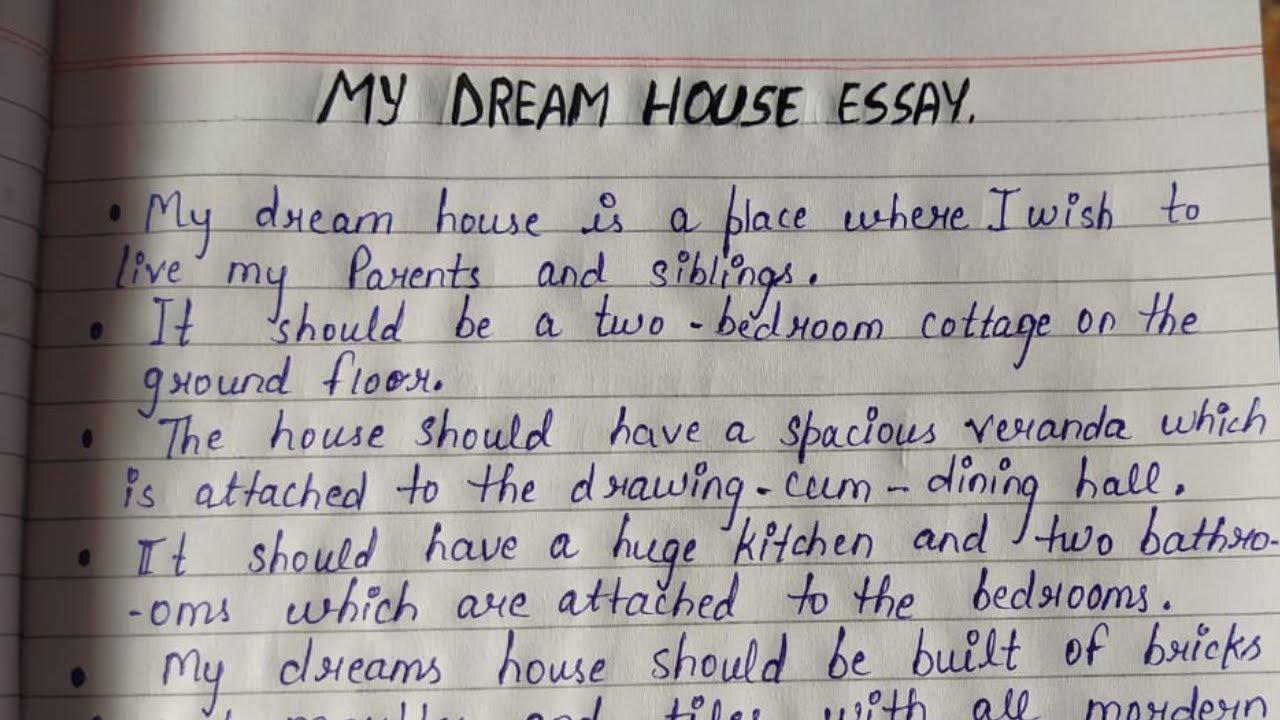 MY DREAM HOUSE ESSAY.
• My dream house is a place where I wish to
live my Parents and siblings.
• It should be a two-bedroom cottage on the
ground floor.
• The house should have a spacious veranda which
is attached to the drawing-cum-dining hall.
• It should have a huge kitchen and two bathro-
-oms which are attached to the bedrooms.
• My dreams house should be built of bricks
and tiles with all mordern